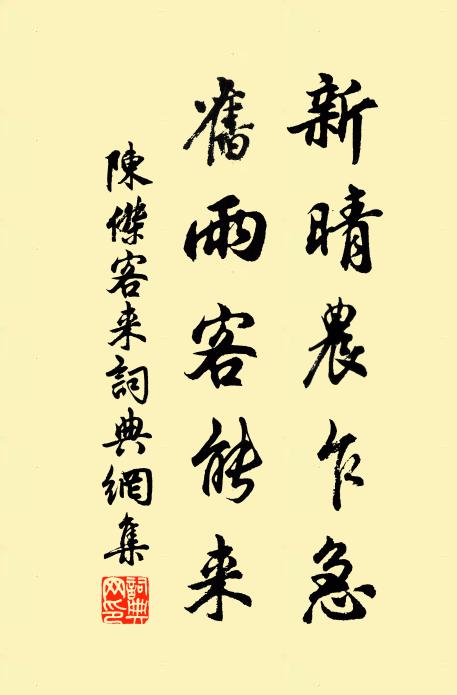 新晴農乍急
舊雨客能来
陳傑客来詞典網集
詞典网印